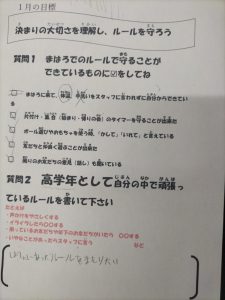 1月の目標
決まりの大切さを理解し、ルールを守ろう
質問1 まほうでのルールで守ることが
できているものに☑をしてね
まほうに来て、検温、手洗いをスタッフに言われずに自分からできてい
る
片付け・集合(始まり・帰りの会)のタイマーを守ることが出来た
ボール遊びやおもちゃを使う時、「かして」「いれて」と言えている
友だちと仲良く遊ぶことが出来た
周りのお友だちの意見(話し)も聞いている
質問2 高学年として自分の中で頑張っ
ているルールを書いて下さい
たとえば
・声かけをやさしくする
・イライラしたら〇〇する
・困っているお友だちや年下のお友だちがいたら 〇〇する
・いやなことがあったらスタッフに言う など
ルールをまもりたい